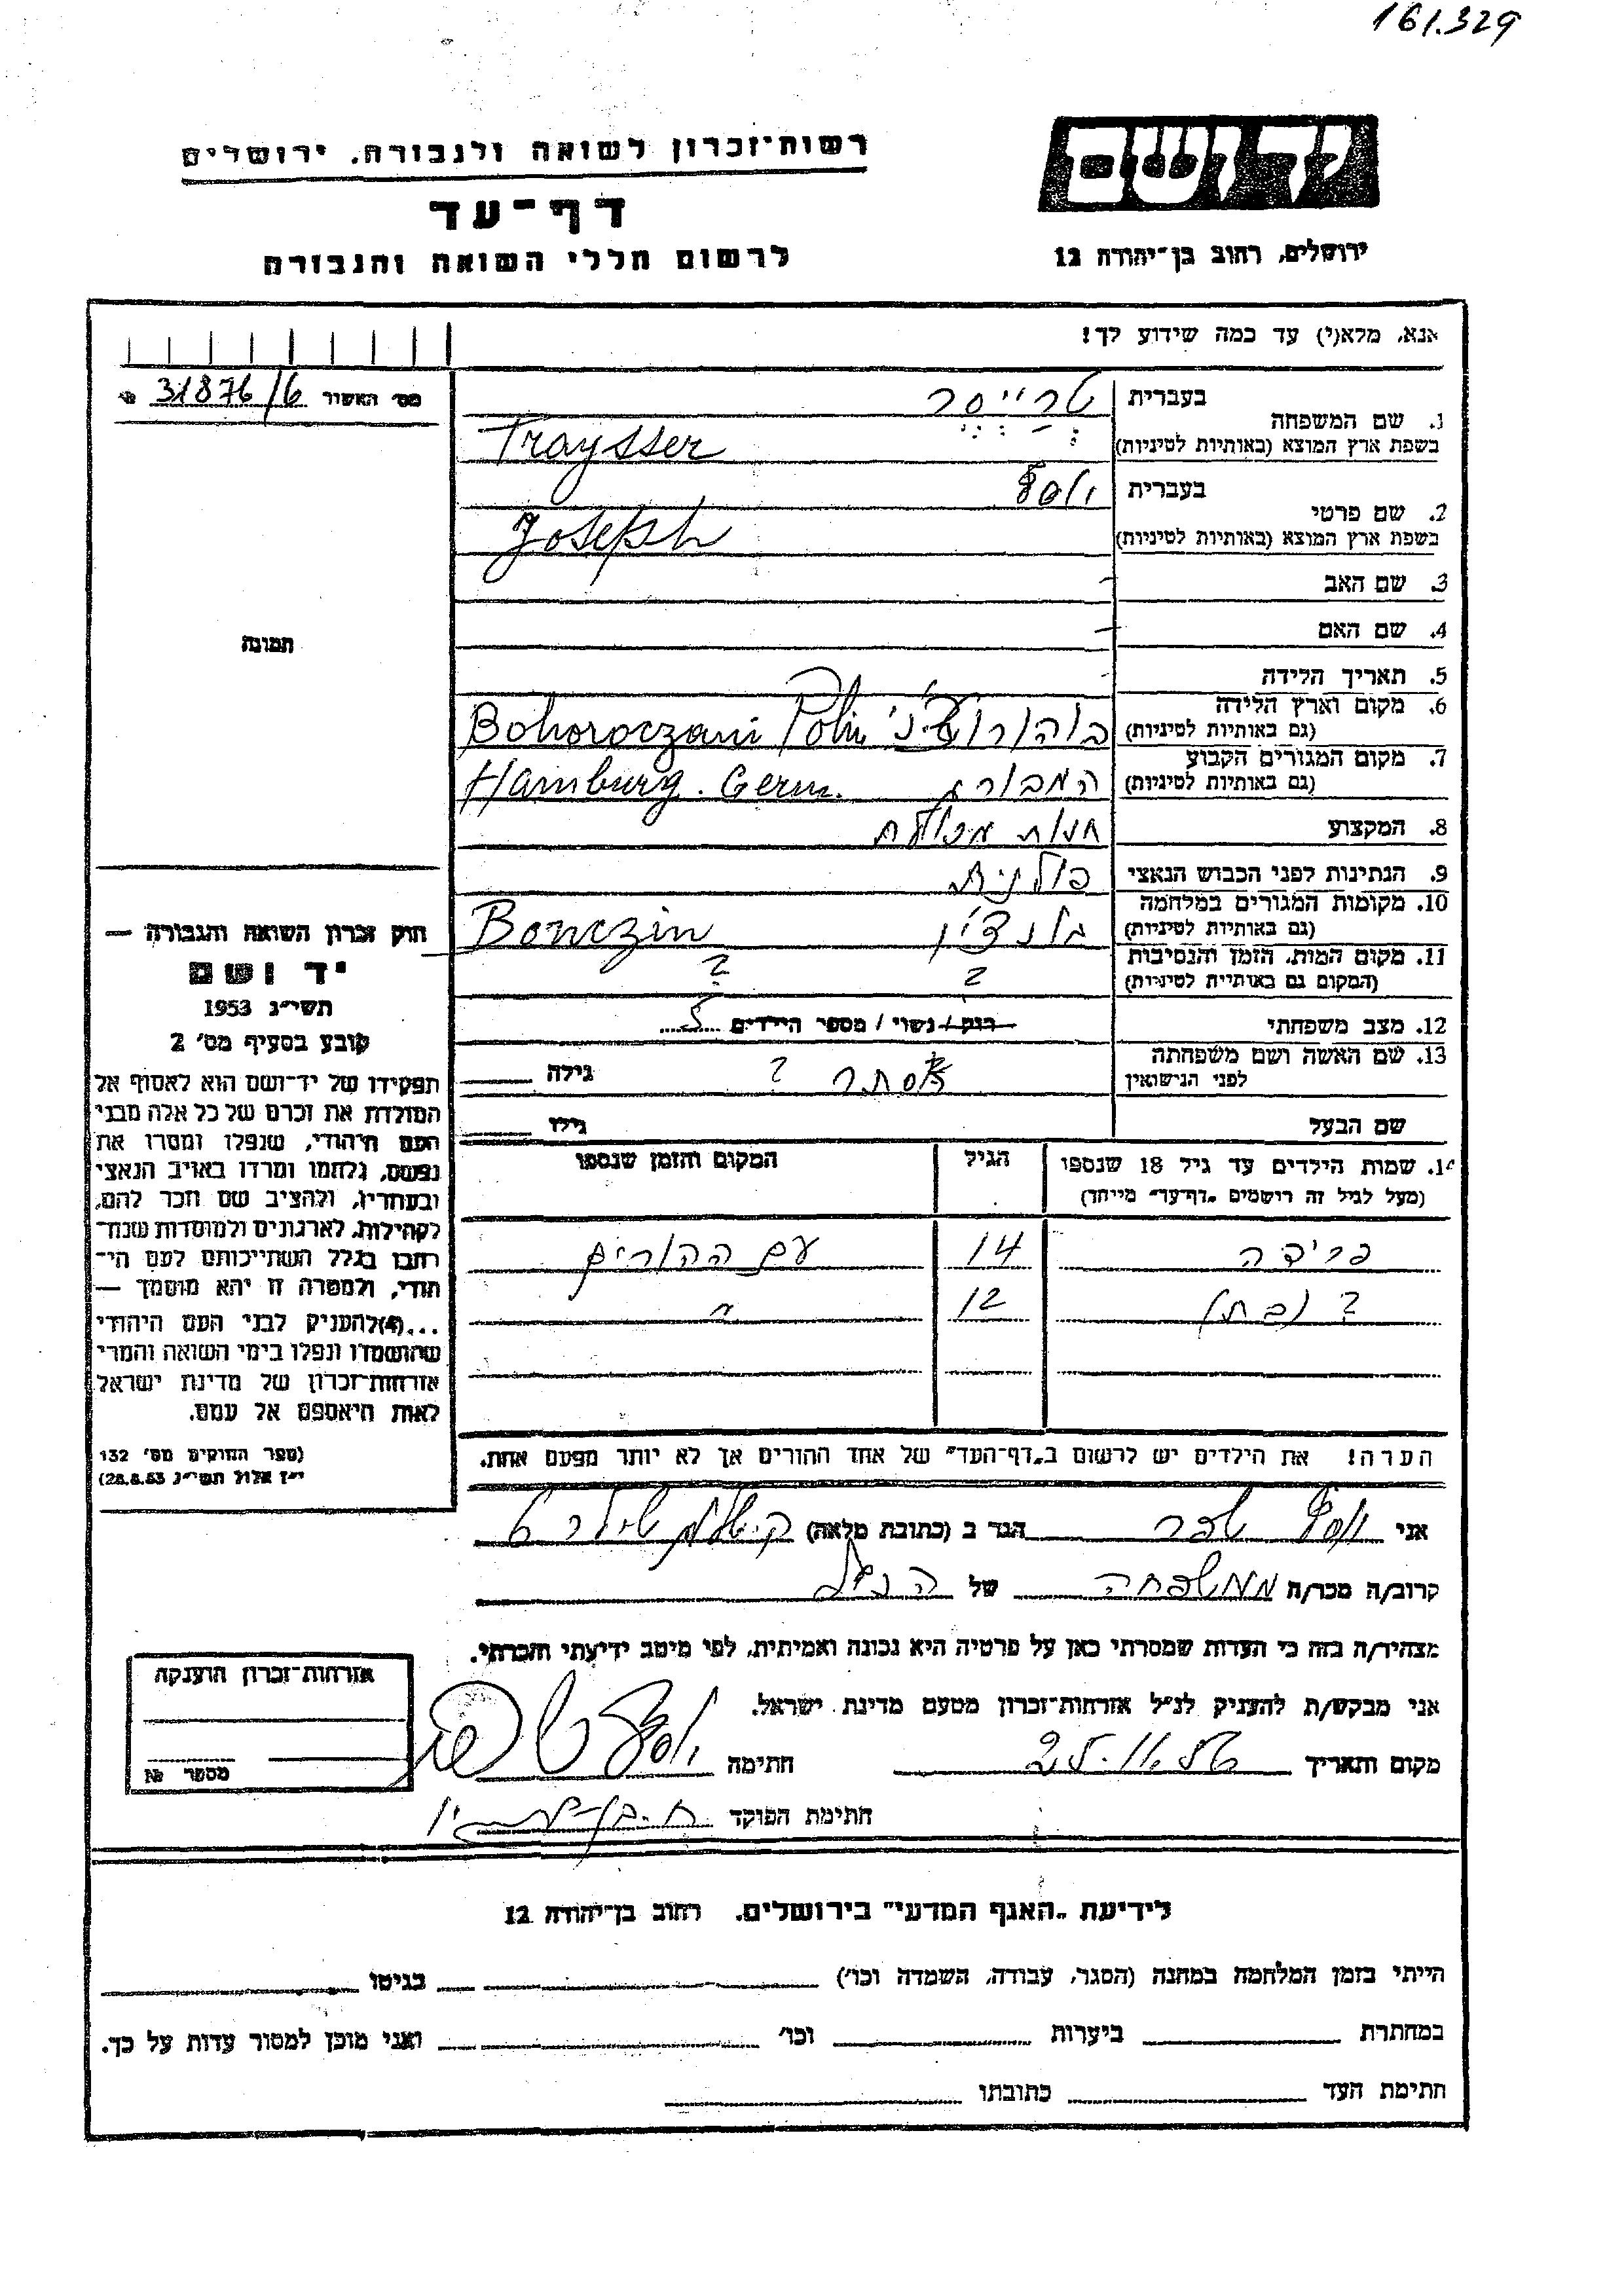 161.329
יד ושם
רשות־זכרון לשואה ולגבורה, ירושלים
דף־עד
לרשום חללי השואה והגבורה
ירושלים, רחוב בן־יהודה 12
אנא, מלא(י) עד כמה שידוע לך!
מס׳ האשור 31876/6 №
1. שם המשפחה בעברית טרייסר
בשפת ארץ המוצא (באותיות לטיניות) Traysser
2. שם פרטי בעברית יוסף
בשפת ארץ המוצא (באותיות לטיניות) Joseph
3. שם האב -
4. שם האם -
תמונה
5. תאריך הלידה -
6. מקום וארץ הלידה
(גם באותיות לטיניות) Bohoroczani Polin
7. מקום המגורים הקבוע
(גם באותיות לטיניות) המבורג Hamburg. Germ.
8. המקצוע חנות מכולת
9. הנתינות לפני הכבוש הנאצי פולנית
10. מקומות המגורים במלחמה
(גם באותיות לטיניות) בונצ׳ין Bonczin
11. מקום המות, הזמן והנסיבות
(המקום גם באותיות לטיניות) ? ?
12. מצב משפחתי רווק / נשוי / מספר הילדים 5
13. שם האשה ושם משפחתה
לפני הנישואין אסתר ? גילה
שם הבעל גילו
14. שמות הילדים עד גיל 18 שנספו הגיל המקום והזמן שנספו
(מעל לגיל זה רושמים „דף־עד״ מייחד)
פרידה 14 עם ההורים
? (בת) 12 〃
הערה! את הילדים יש לרשום ב„דף־העד״ של אחד ההורים אך לא יותר מפעם אחת.
חוק זכרון השואה והגבורה —
יד ושם
תשי״ג 1953
קובע בסעיף מס׳ 2
תפקידו של יד־ושם הוא לאסוף אל
המולדת את זכרם של כל אלה מבני
העם היהודי, שנפלו ומסרו את
נפשם, נלחמו ומרדו באויב הנאצי
ובעוזריו, ולהציב שם וזכר להם,
לקהילות, לארגונים ולמוסדות שנח־
רבו בגלל השתייכותם לעם הי־
הודי, ולמטרה זו יהא מוסמך —
...(4) להעניק לבני העם היהודי
שהושמדו ונפלו בימי השואה והמרי
אזרחות־זכרון של מדינת ישראל
לאות היאספם אל עמם.
(ספר החוקים מס׳ 132
י״ז אלול תשי״ג 28.8.53)
אני יוסף הגר ב (כתובת מלאה)
קרוב/ה מכר/ה ממשפחה של הנ״ל
מצהיר/ה בזה כי העדות שמסרתי כאן על פרטיה היא נכונה ואמיתית, לפי מיטב ידיעתי והכרתי.
אני מבקש/ת להעניק לנ״ל אזרחות־זכרון מטעם מדינת ישראל.
מקום ותאריך 25.11.56 חתימה יוסף
חתימת הפוקד
אזרחות־זכרון הוענקה
מספר №
לידיעת „האגף המדעי״ בירושלים, רחוב בן־יהודה 12
הייתי בזמן המלחמה במחנה (הסגר, עבודה, השמדה וכו׳) בגיטו
במחתרת ביערות וכו׳ ואני מוכן למסור עדות על כך.
חתימת העד כתובתו